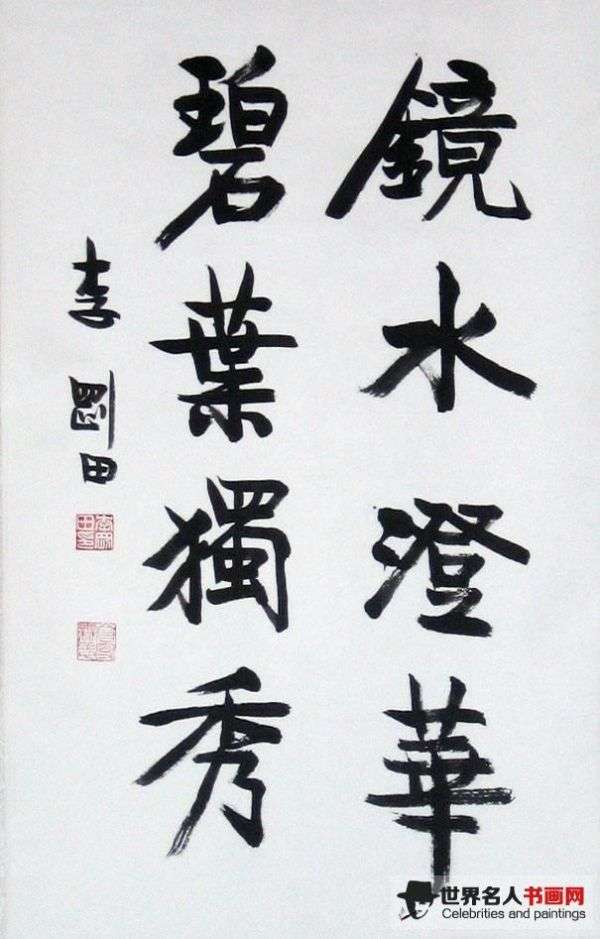 鏡水澄華
碧葉獨秀
李剛田
世界名人书画网
Celebrities and paintings